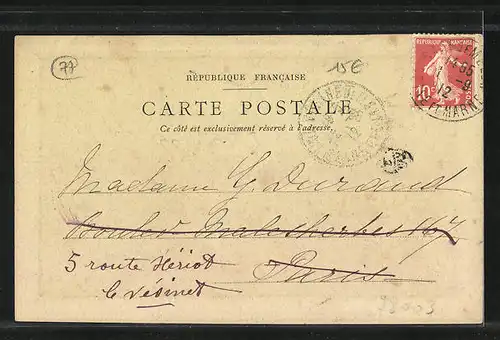 77
15€
RÉPUBLIQUE FRANÇAISE
10
CARTE POSTALE
Ce côté est exclusivement réservé à l'adresse.
Madame G. Durand
Boulev Malesherbes 167
5 route Hériot
Paris
le Vésinet